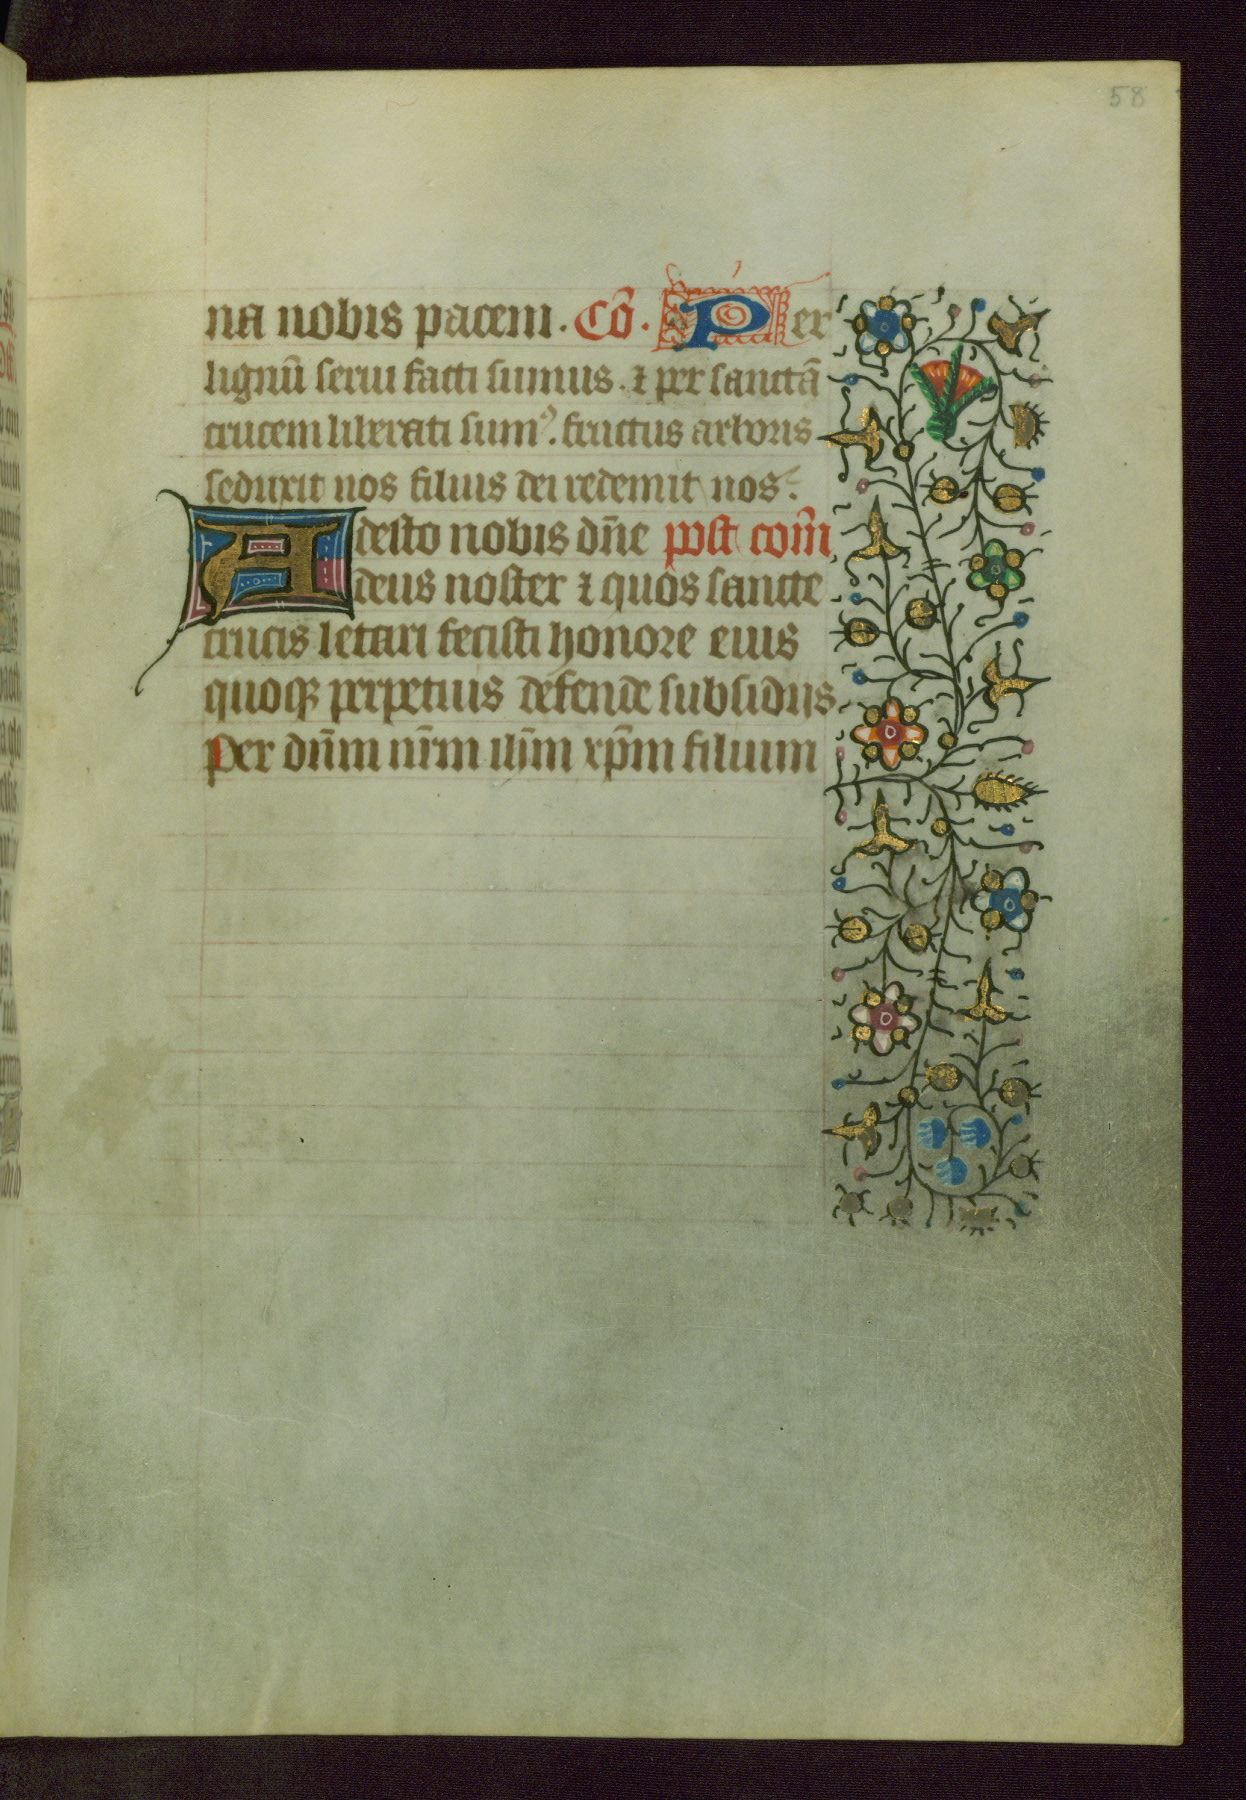 58
na nobis pacem. Cō. Per
lignū serui facti sumus. ⁊ per sanctā
crucem liberati sumꝰ. fructus arboris
seduxit nos filius dei redemit nos.
Adesto nobis dn̄e post com̄
deus noster ⁊ quos sancte
crucis letari fecisti honore eius
quoqꝫ perpetuis defende subsidijs.
Per dn̄m nr̄m ih̄m xp̄m filium